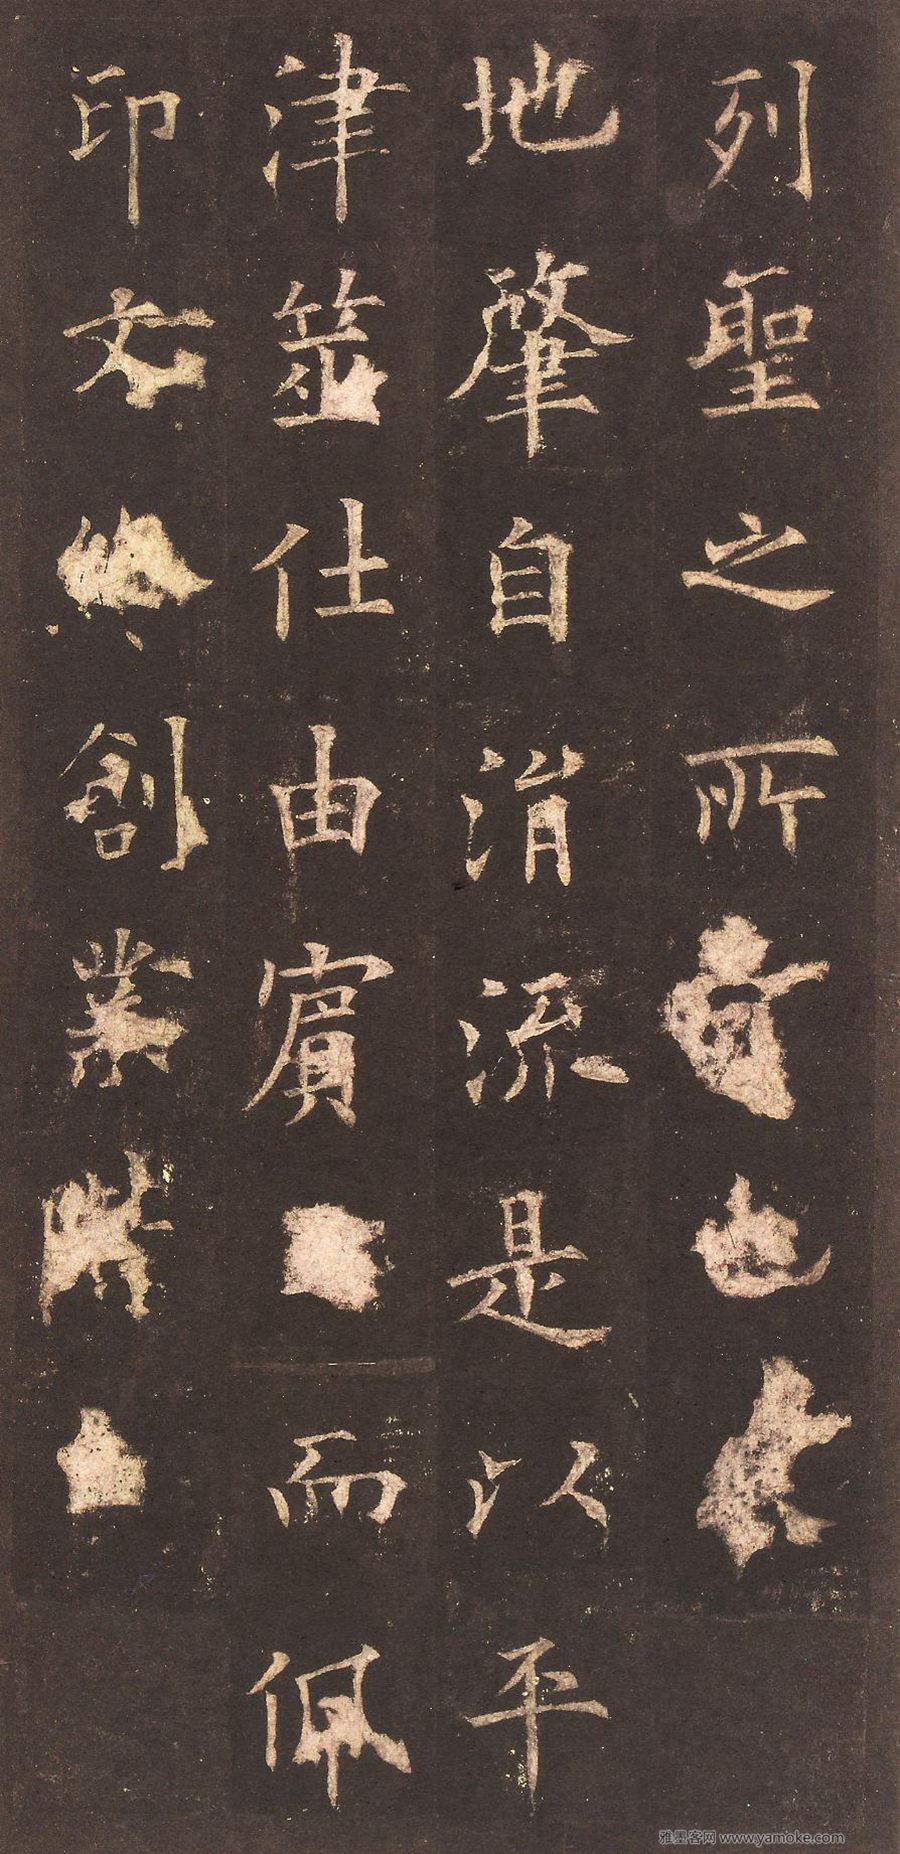 列聖之所也
地肇自涓流是以平
津筮仕由賓而佩
印文終創業階
雅墨客网 www.yamoke.com